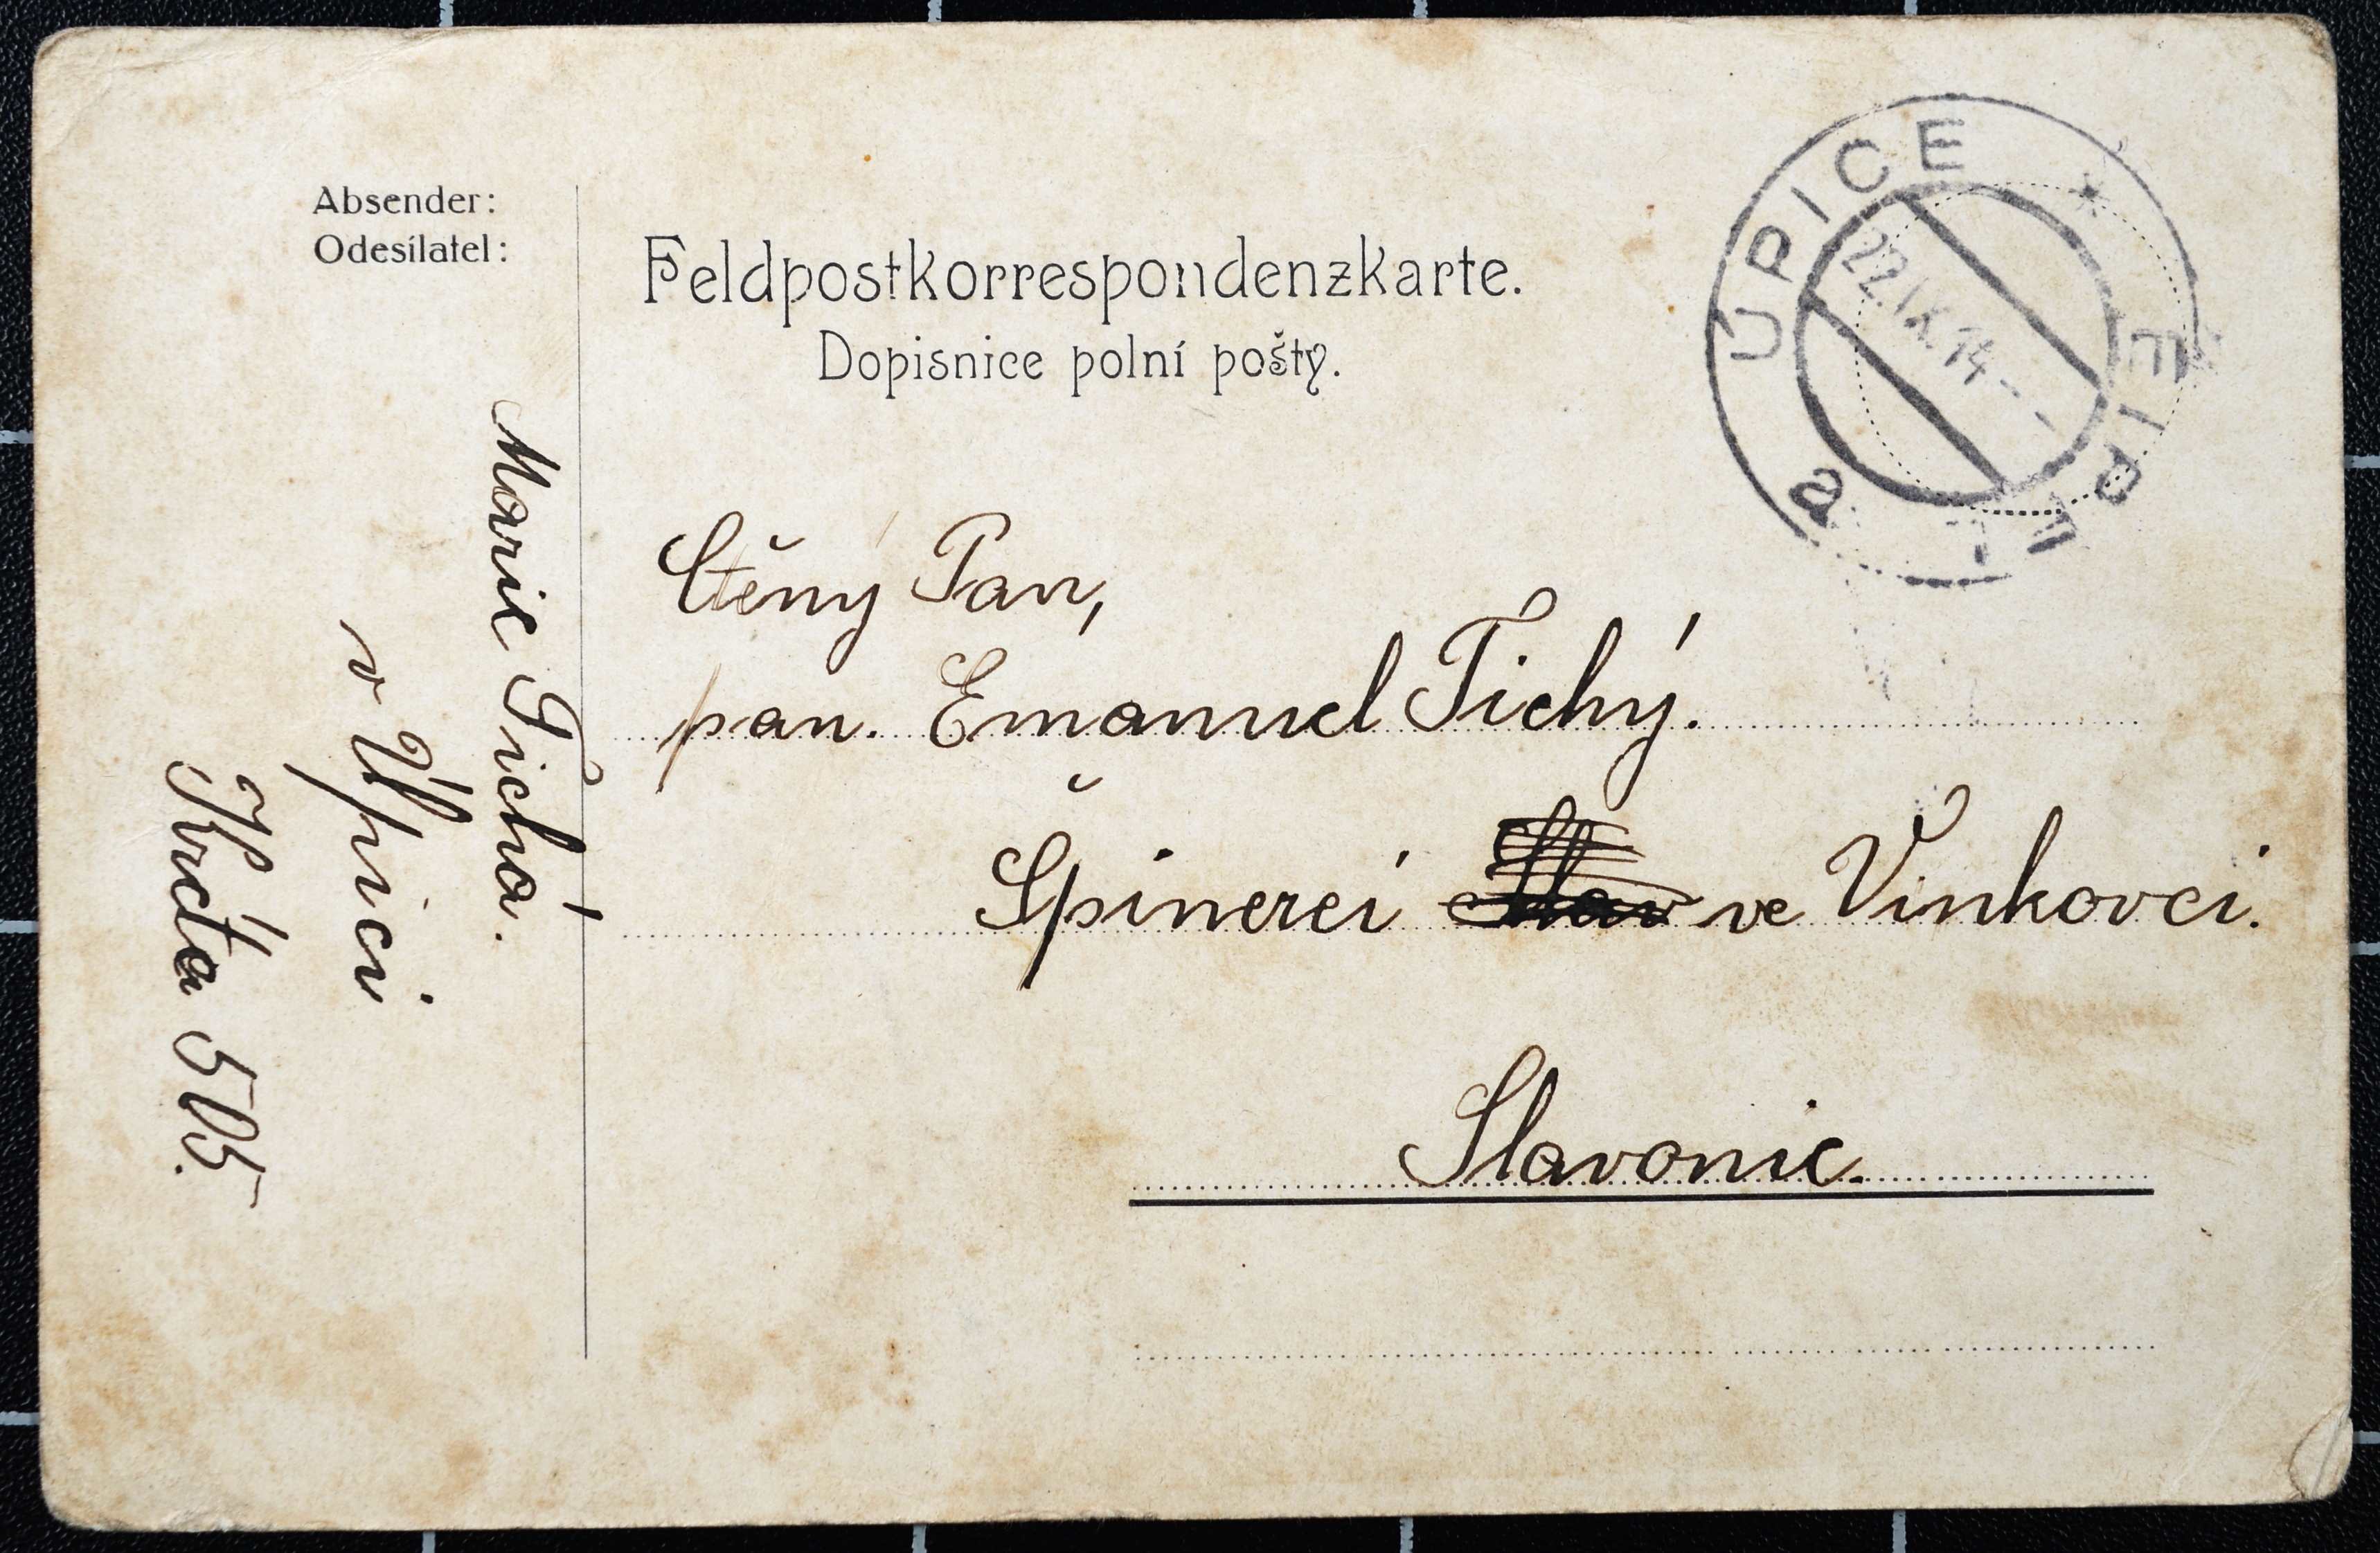 Absender:
Odesílatel:
Marie Tichá.
v Úpici
Krčta 505.
Feldpostkorrespondenzkarte.
Dopisnice polní pošty.
Ctěný Pan,
pan. Emanuel Tichý.
Špinerei ve Vinkovci.
Slavonie.
ÚPICE * EIPEL a
22.IX.14